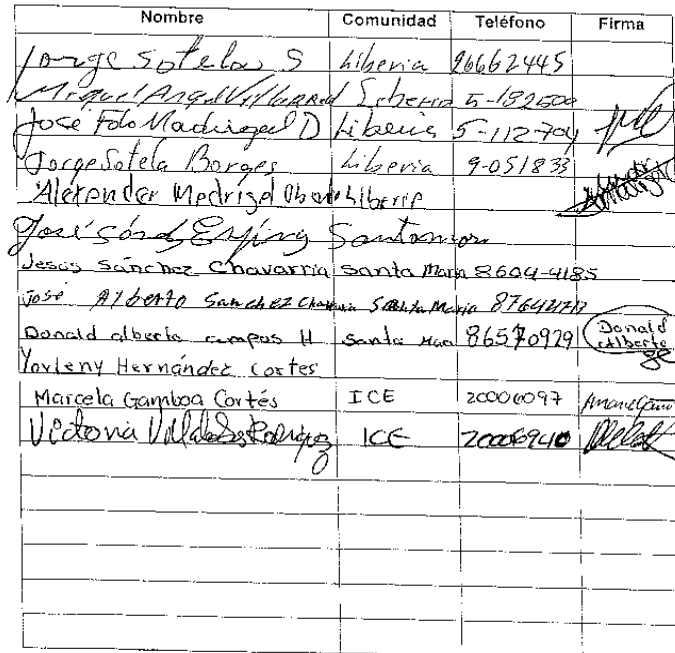 Nombre Comunidad Teléfono Firma
Jorge Sotela S Liberia 26662445
Miguel Angel Villarreal Liberia 5-182500
José Fdo Madrigal D Liberia 5-112-704
Jorge Sotela Borges Liberia 9-051833
Alexander Madrigal Liberia
José
Jesús Sánchez Chavarría Santa María 8604-4185
José Alberto Sanchez Santa Maria
Donald alberto campos H Santa 86570929 Donald Alberto
Yorleny Hernández Cortes
Marcela Gamboa Cortés ICE 20006097
Victoria Rodríguez ICE 20006940